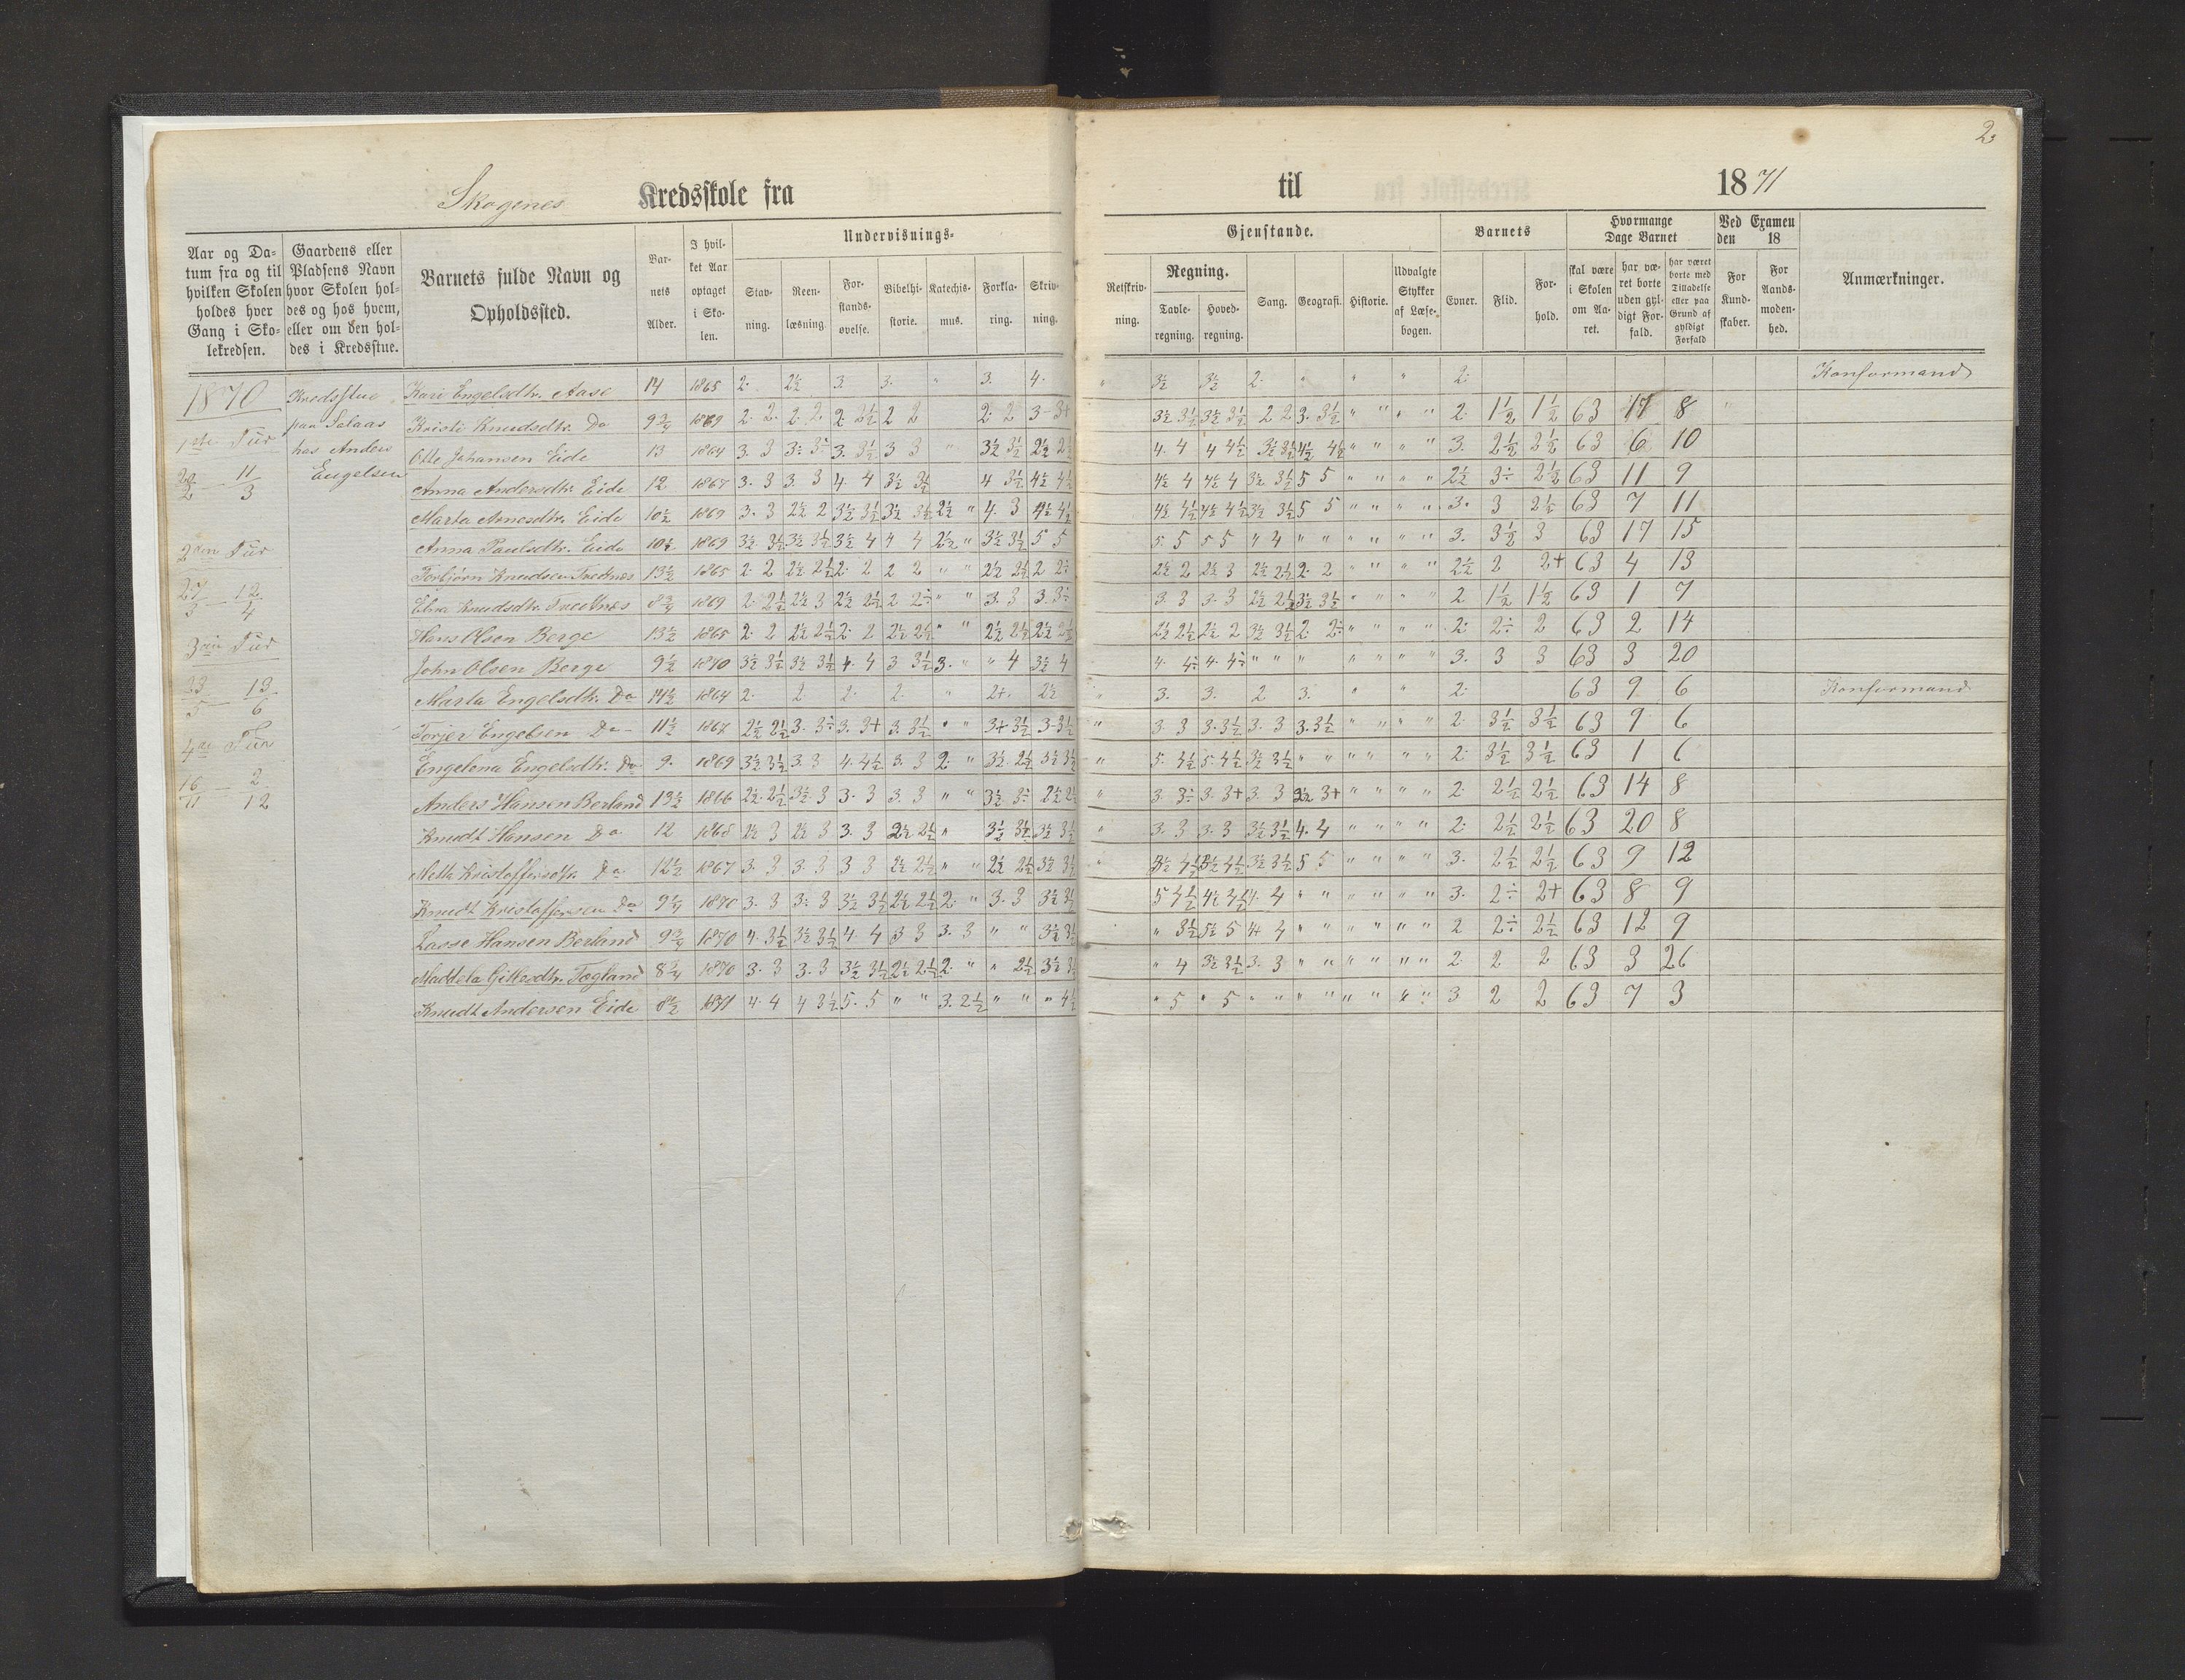 2
Skogenes Kredsskole fra til 1871
Aar og Datum fra og til hvilken Skolen holdes hver Gang i Skolekredsen.
Gaardens eller Pladsens Navn hvor Skolen holdes og hos hvem, eller om den holdes i Kredsstue.
Barnets fulde Navn og Opholdssted.
Barnets Alder.
I hvilket Aar optaget i Skolen.
Undervisnings-
Stavning.
Reenlæsning.
Forstandsøvelse.
Bibelhistorie.
Katechismus.
Forklaring.
Skrivning.
Gjenstande.
Retskrivning.
Regning.
Tavleregning.
Hovedregning.
Sang.
Geografi.
Historie.
Udvalgte Stykker af Læsebogen.
Barnets
Evner.
Flid.
Forhold.
Hvormange Dage Barnet
skal være i Skolen om Aaret.
har været borte uden gyldigt Forfald.
har været borte med Tilladelse eller paa Grund af gyldigt Forfald
Ved Examen den 18
For Kundskaber.
For Aandsmodenhed.
Anmærkninger.
1870
1ste Tur
22/2 — 11/3
2den Tur
27/3 — 12/4
3die Tur
23/5 — 13/6
4de Tur
16/11 — 2/12
Kredsstue
paa Salaas
hos Anders
Engelsen
Kari Engelsdtr. Aase 14 1865 2. 2½ 3. 3. " 3. 4. " 3½ 3½ 2. " " " 2. Konfirmand
Kristi Knudsdtr. Do 9¾ 1869 2. 2. 2. 2 2. 2½ 2 2 2. 2 3 3+ 3½ 3½ 3½ 3½ 2 2 3. 3½ " " " " 2. 1½ 1½ 63 17 8 "
Otte Johansen Eide 13 1864 3. 3 3. 3÷ 3. 3½ 3 3 " 3½ 3½ 2½ 2½ 4. 4 4 4½ 3½ 3½ 4½ 4½ " " " " 3. 2½ 2½ 63 6 10
Anna Andersdtr. Eide 12 1867 3. 3 3 3 4. 4 3½ 3½ 4 3½ 4½ 4½ 4½ 4 4½ 4 3½ 3½ 5 5 " " " " 2½ 3÷ 2½ 63 11 9
Marta Arnesdtr. Eide 10½ 1869 3. 3 2½ 2 3½ 3½ 3½ 3½ 2½ " 4. 3 4½ 4½ 4½ 4½ 4½ 4½ 3½ 3½ 5 5 " " " " 3. 3 2½ 63 7 11
Anna Paulsdtr. Eide 10½ 1869 3½ 3½ 3½ 3½ 3½ 4 4 4 2½ " 3½ 3½ 5 5 5. 5 5 5 " 4 " " " " " " 3. 3½ 3 63 17 15
Torbjørn Knudsen 13½ 1865 2. 2 2½ 2½ 2. 2 2 2 " " 2½ 2½ 2 2÷ 2½ 2 2½ 3 2½ 2½ 2. 2 " " " " 2½ 2 2+ 63 4 13
Knudsdtr. 8¾ 1869 2. 2½ 2½ 3 2½ 2½ 2 2÷ " " 3. 3 3. 3÷ 3. 3 3. 3 2½ 2½ 3½ 3½ " " " " 2 1½ 1½ 63 1 7
Hans Olsen Berge 13½ 1865 2. 2 2½ 2½ 2. 2 2½ 2½ " " 2½ 2½ 2½ 2½ 2½ 2½ 2½ 2 3½ 3½ 2. 2÷ " " " " 2. 2÷ 2 63 2 14
John Olsen Berge 9½ 1870 3½ 3½ 3½ 3½ 4. 4 3 3½ 3. " " 4 3½ 4 4. 4÷ 4. 4÷ " " " " " " " 3. 3 3 63 3 20
Marta Engelsdtr. Do 14½ 1864 2. 2. 2. 2. " 2+. 2½ " 3. 3. 2. 3. " " 2. 63 9 6 Konfirmand
Torjer Engelsen Do 11½ 1867 2½ 2½ 3. 3÷ 3. 3+ 3. 3½ " " 3+ 3½ 3 3½ " 3. 3 3. 3½ 3. 3 3. 3½ " " " " 2. 3½ 3½ 63 9 6
Engelena Engelsdtr. Do 9. 1869 3½ 3½ 3. 3 4. 4½ 3. 3 2. " 3½ 2½ 3½ 3½ " 5. 4½ 5. 4½ 3½ 3½ " " " " " " 2. 3½ 3½ 63 1 6
Anders Hansen Berland 13½ 1866 2½ 2½ 3½ 3 3. 3 3. 3 " " 3½ 3÷ 2½ 2½ " 3. 3÷ 3. 3+ 3. 3 3½ 3+ " " " " 2. 2½ 2½ 63 14 8
Knudt Hansen Do 12 1868 2½ 3 2½ 3 3. 3 2½ 2½ " 3½ 3½ 3½ 3½ " 3. 3 3. 3 3½ 3½ 4. 4 " " " " 2. 2½ 2½ 63 20 8
Kristoffersdtr. Do 12½ 1867 3. 3 3. 3 3 3 2½ 2½ " " 2½ 2½ 3½ 3½ " 3½ 4½ 3½ 4½ 3½ 3½ 5 5 " " " " 3. 2½ 2½ 63 9 12
Knudt Kristoffersen Do 9¾ 1870 3. 3 3. 3 3½ 3½ 2½ 2½ 2. " 3. 3 3½ 3½ 5 4½ 4½ 4½ 4. 4 " " " " " " 3. 2÷ 2+ 63 8 9
Lasse Hansen Berland 9¾ 1870 4. 3½ 3½ 3½ 4. 4 3 3 3. 3 " " 3½ 3½ " 3½ 5½ 5 4 4 " " " " " " 2 2÷ 2½ 63 12 9
Fogland 8¾ 1870 3. 3 3. 3 3½ 3½ 2½ 2½ 2. " " 2½ 3½ 3½ " 4 3½ 3½ 3. 3 " " " " " " 2. 2 2 63 3 26
Knudt Andersen Eide 8½ 1871 4. 4 4 3½ 5. 5 " " 3. 2½ " " " 4½ " 5 " 5 " " " " " " " " 3 2 2 63 7 3